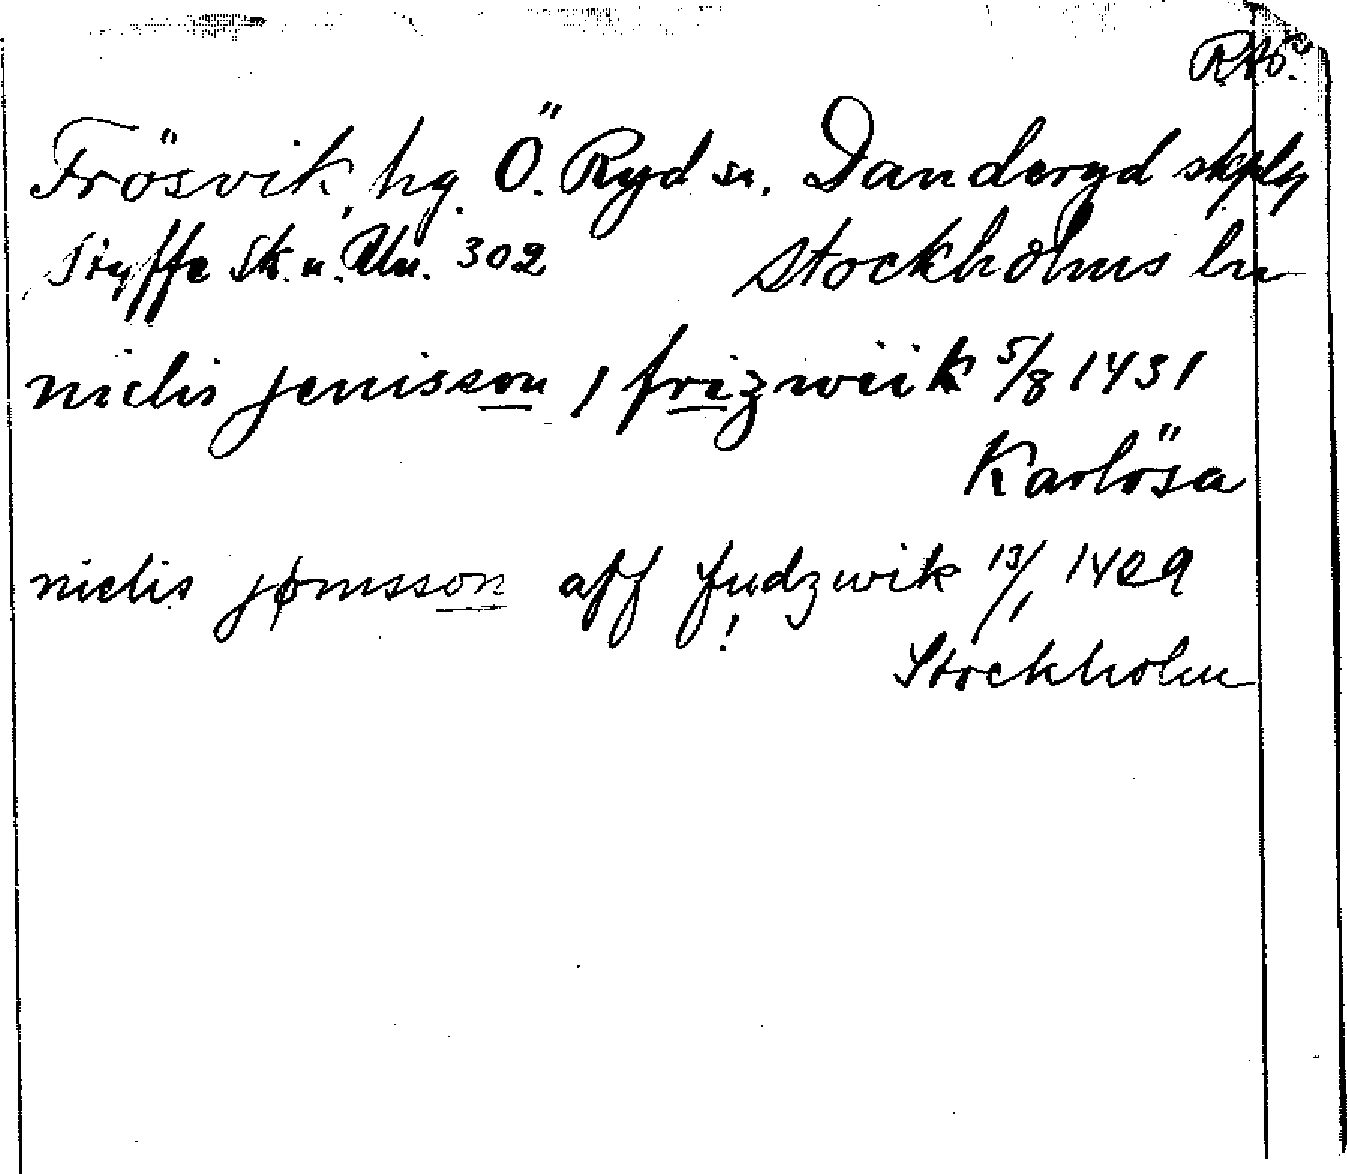 Frösvik, hg. Ö. Ryd sn. Danderyd skplg
Styffe Sk. u. Un. 302 Stockholms ln
nielis jenisson j frizwiik 5/8 1431
Karlösa
nielis jønisson aff fudzwik 13/1 1429
Stockholm